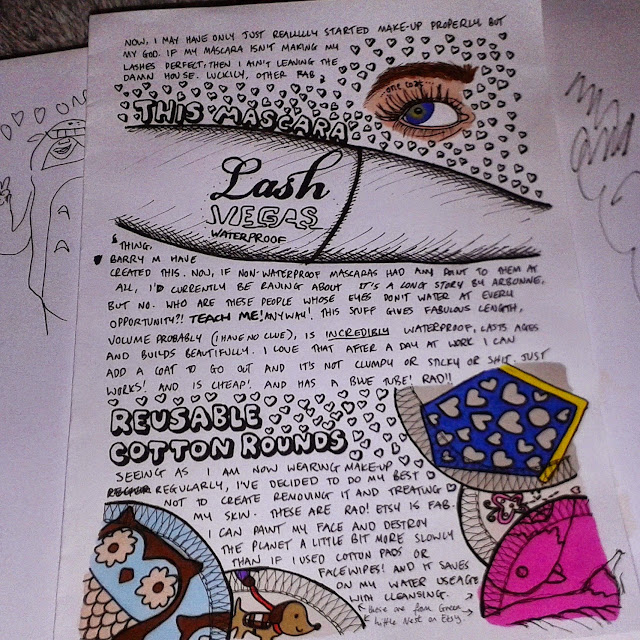 NOW, I MAY HAVE ONLY JUST REALLLLY STARTED MAKE-UP PROPERLY. BUT
MY GOD. IF MY MASCARA ISN'T MAKING MY
LASHES PERFECT, THEN I AIN'T LEAVING THE
DAMN HOUSE. LUCKILY, OTHER FAB
...ONE COAT
THIS MASCARA
Lash
VEGAS
WATERPROOF
THING.
BARRY M HAVE
CREATED THIS. NOW, IF NON-WATERPROOF MASCARAS HAD ANY POINT TO THEM AT
ALL, I'D CURRENTLY BE RAVING ABOUT IT'S A LONG STORY BY ARBONNE,
BUT NO. WHO ARE THESE PEOPLE WHOSE EYES DON'T WATER AT EVERY
OPPORTUNITY?! TEACH ME! ANYWAY! THIS STUFF GIVES FABULOUS LENGTH,
VOLUME PROBABLY (I HAVE NO CLUE), IS INCREDIBLY WATERPROOF, LASTS AGES
AND BUILDS BEAUTIFULLY. I LOVE THAT AFTER A DAY AT WORK I CAN
ADD A COAT TO GO OUT AND IT'S NOT CLUMPY OR STICKY OR SHIT. JUST
WORKS! AND IS CHEAP! AND HAS A BLUE TUBE! RAD!!
REUSABLE
COTTON ROUNDS
SEEING AS I AM NOW WEARING MAKE-UP
REGULARLY, I'VE DECIDED TO DO MY BEST
NOT TO CREATE REMOVING IT AND TREATING
MY SKIN. THESE ARE RAD! ETSY IS FAB.
I CAN PAINT MY FACE AND DESTROY
THE PLANET A LITTLE BIT MORE SLOWLY
THAN IF I USED COTTON PADS OR
FACEWIPES! AND IT SAVES
ON MY WATER USEAGE
WITH CLEANSING.
these are from Green
Little Nest on Etsy.